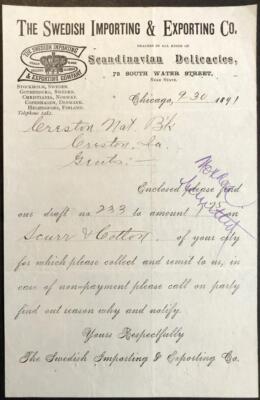 THE SWEDISH IMPORTING & EXPORTING CO.
THE SWEDISH IMPORTING
& EXPORTING COMPANY
DEALERS IN ALL KINDS OF
Scandinavian Delicacies,
STOCKHOLM, SWEDEN.
GOTHENBURG, SWEDEN.
CHRISTIANIA, NORWAY.
COPENHAGEN, DENMARK.
HELSINGFORS, FINLAND.
75 SOUTH WATER STREET,
NEAR STATE.
Chicago, 9-30 1891
Creston Nat. Bk
Creston, Ia.
Gents:-
Enclosed please find
our draft no. 233 to amount on
Scurr & Cotton of your city
for which please collect and remit to us, in
case of non-payment please call on party
find out reason why and notify.
Yours Respectfully
The Swedish Importing & Exporting Co.